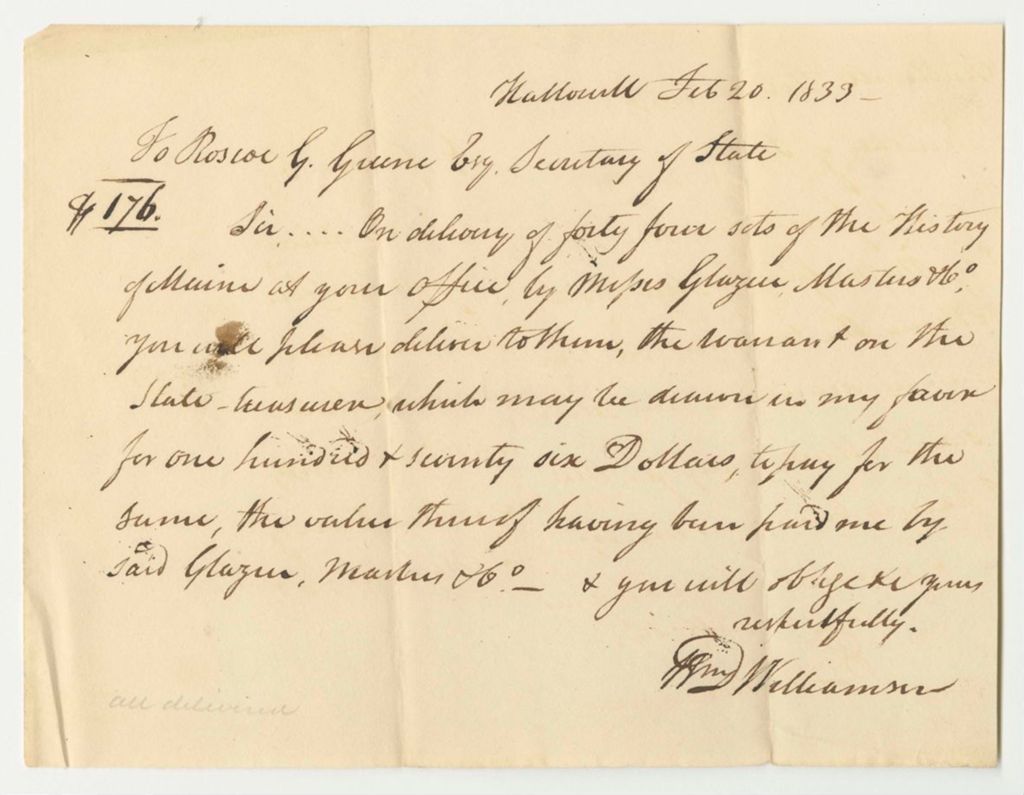 Hallowell Feb 20. 1833 –
To Roscoe G. Greene Esq. Secretary of State
$176.
Sir.... On delivery of forty four sets of the History
of Maine at your office, by Messrs Glazier, Masters & Co.
you will please deliver to them, the warrant on the
State-treasurer, which may be drawn in my favor
for one hundred & seventy six Dollars, to pay for the
same, the value thereof having been paid me by
said Glazier, Masters & Co. – & you will oblige &c yours
respectfully.
Wm D Williamson
all delivered